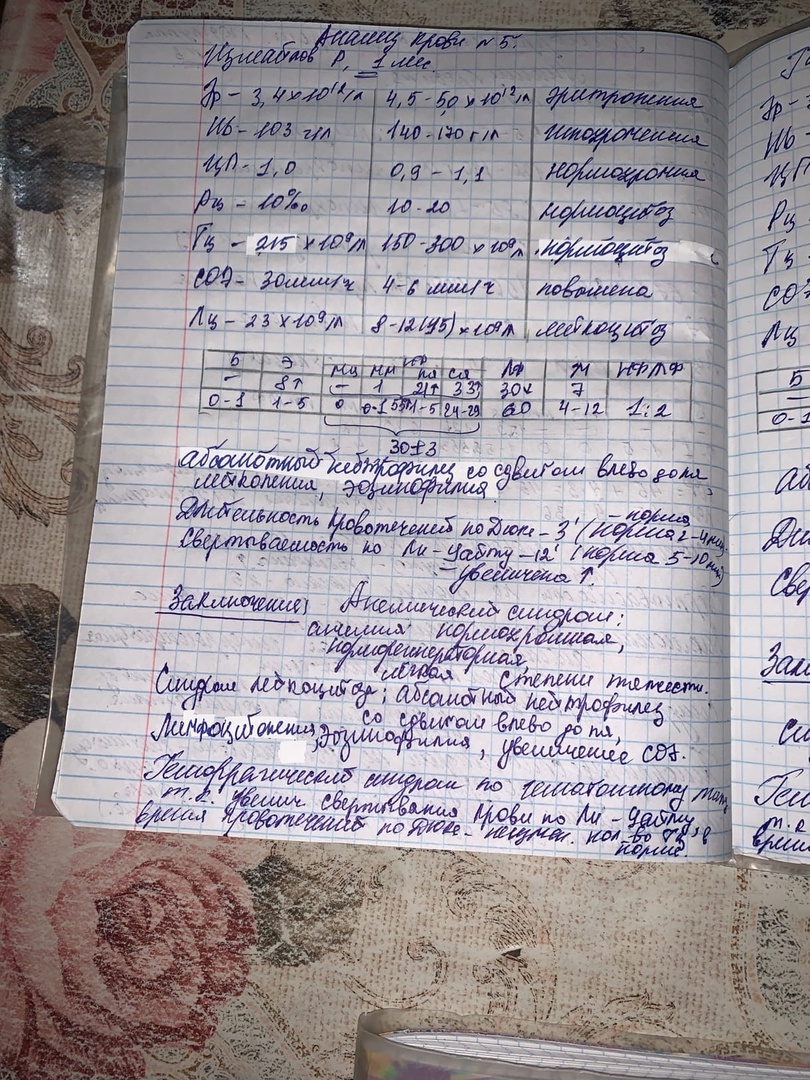 Анализ крови №5.
Исмаилов Р, 1 мес.
Эр – 3,4×10¹²/л 4,5-5,0 ×10¹²/л эритропения
Hb – 103 г/л 140-170 г/л гипохромемия
ЦП – 1,0 0,9 – 1,1 нормохромия
Рц – 10‰ 10-20 нормоцитоз
Тц – 215 ×10⁹/л 150-300 ×10⁹/л нормоцитоз
СОЭ – 30мм/ч 4-6 мм/ч повышена
Лц – 23 ×10⁹/л 8-12 ×10⁹/л лейкоцитоз
Б Э мц мм НФ пя ся ЛФ М НФ/ЛФ
– 8↑ – 1 21↑ 33↑ 30 7
0-1 1-5 0 0-1 1-5 24-29 60 4-12 1:2
30±3
абсолютный нейтрофилез со сдвигом влево до пя,
эозинофилия.
Длительность кровотечений по Дюке – 3' (норма 2-4 мин – норма
Свертываемость по Ли – Уайту – 12' (норма 5-10 мин)
увеличена ↑.
Заключение: Анемический синдром:
анемия нормохромная,
норморегенераторная,
легкая степени тяжести.
Синдром лейкоцитоза; абсолютный нейтрофилез
со сдвигом влево до пя,
Лимфоцитопения, Эозинофилия, увеличение СОЭ.
Геморрагический синдром по гематомному типу
т.к. увелич свертывания крови по Ли – Уайту, а
время кровотечений по Дюке – кол-во Тц в
норме.
Б
0-1
Эр –
Hb –
ЦП
Рц
Тц –
СОЭ
Лц